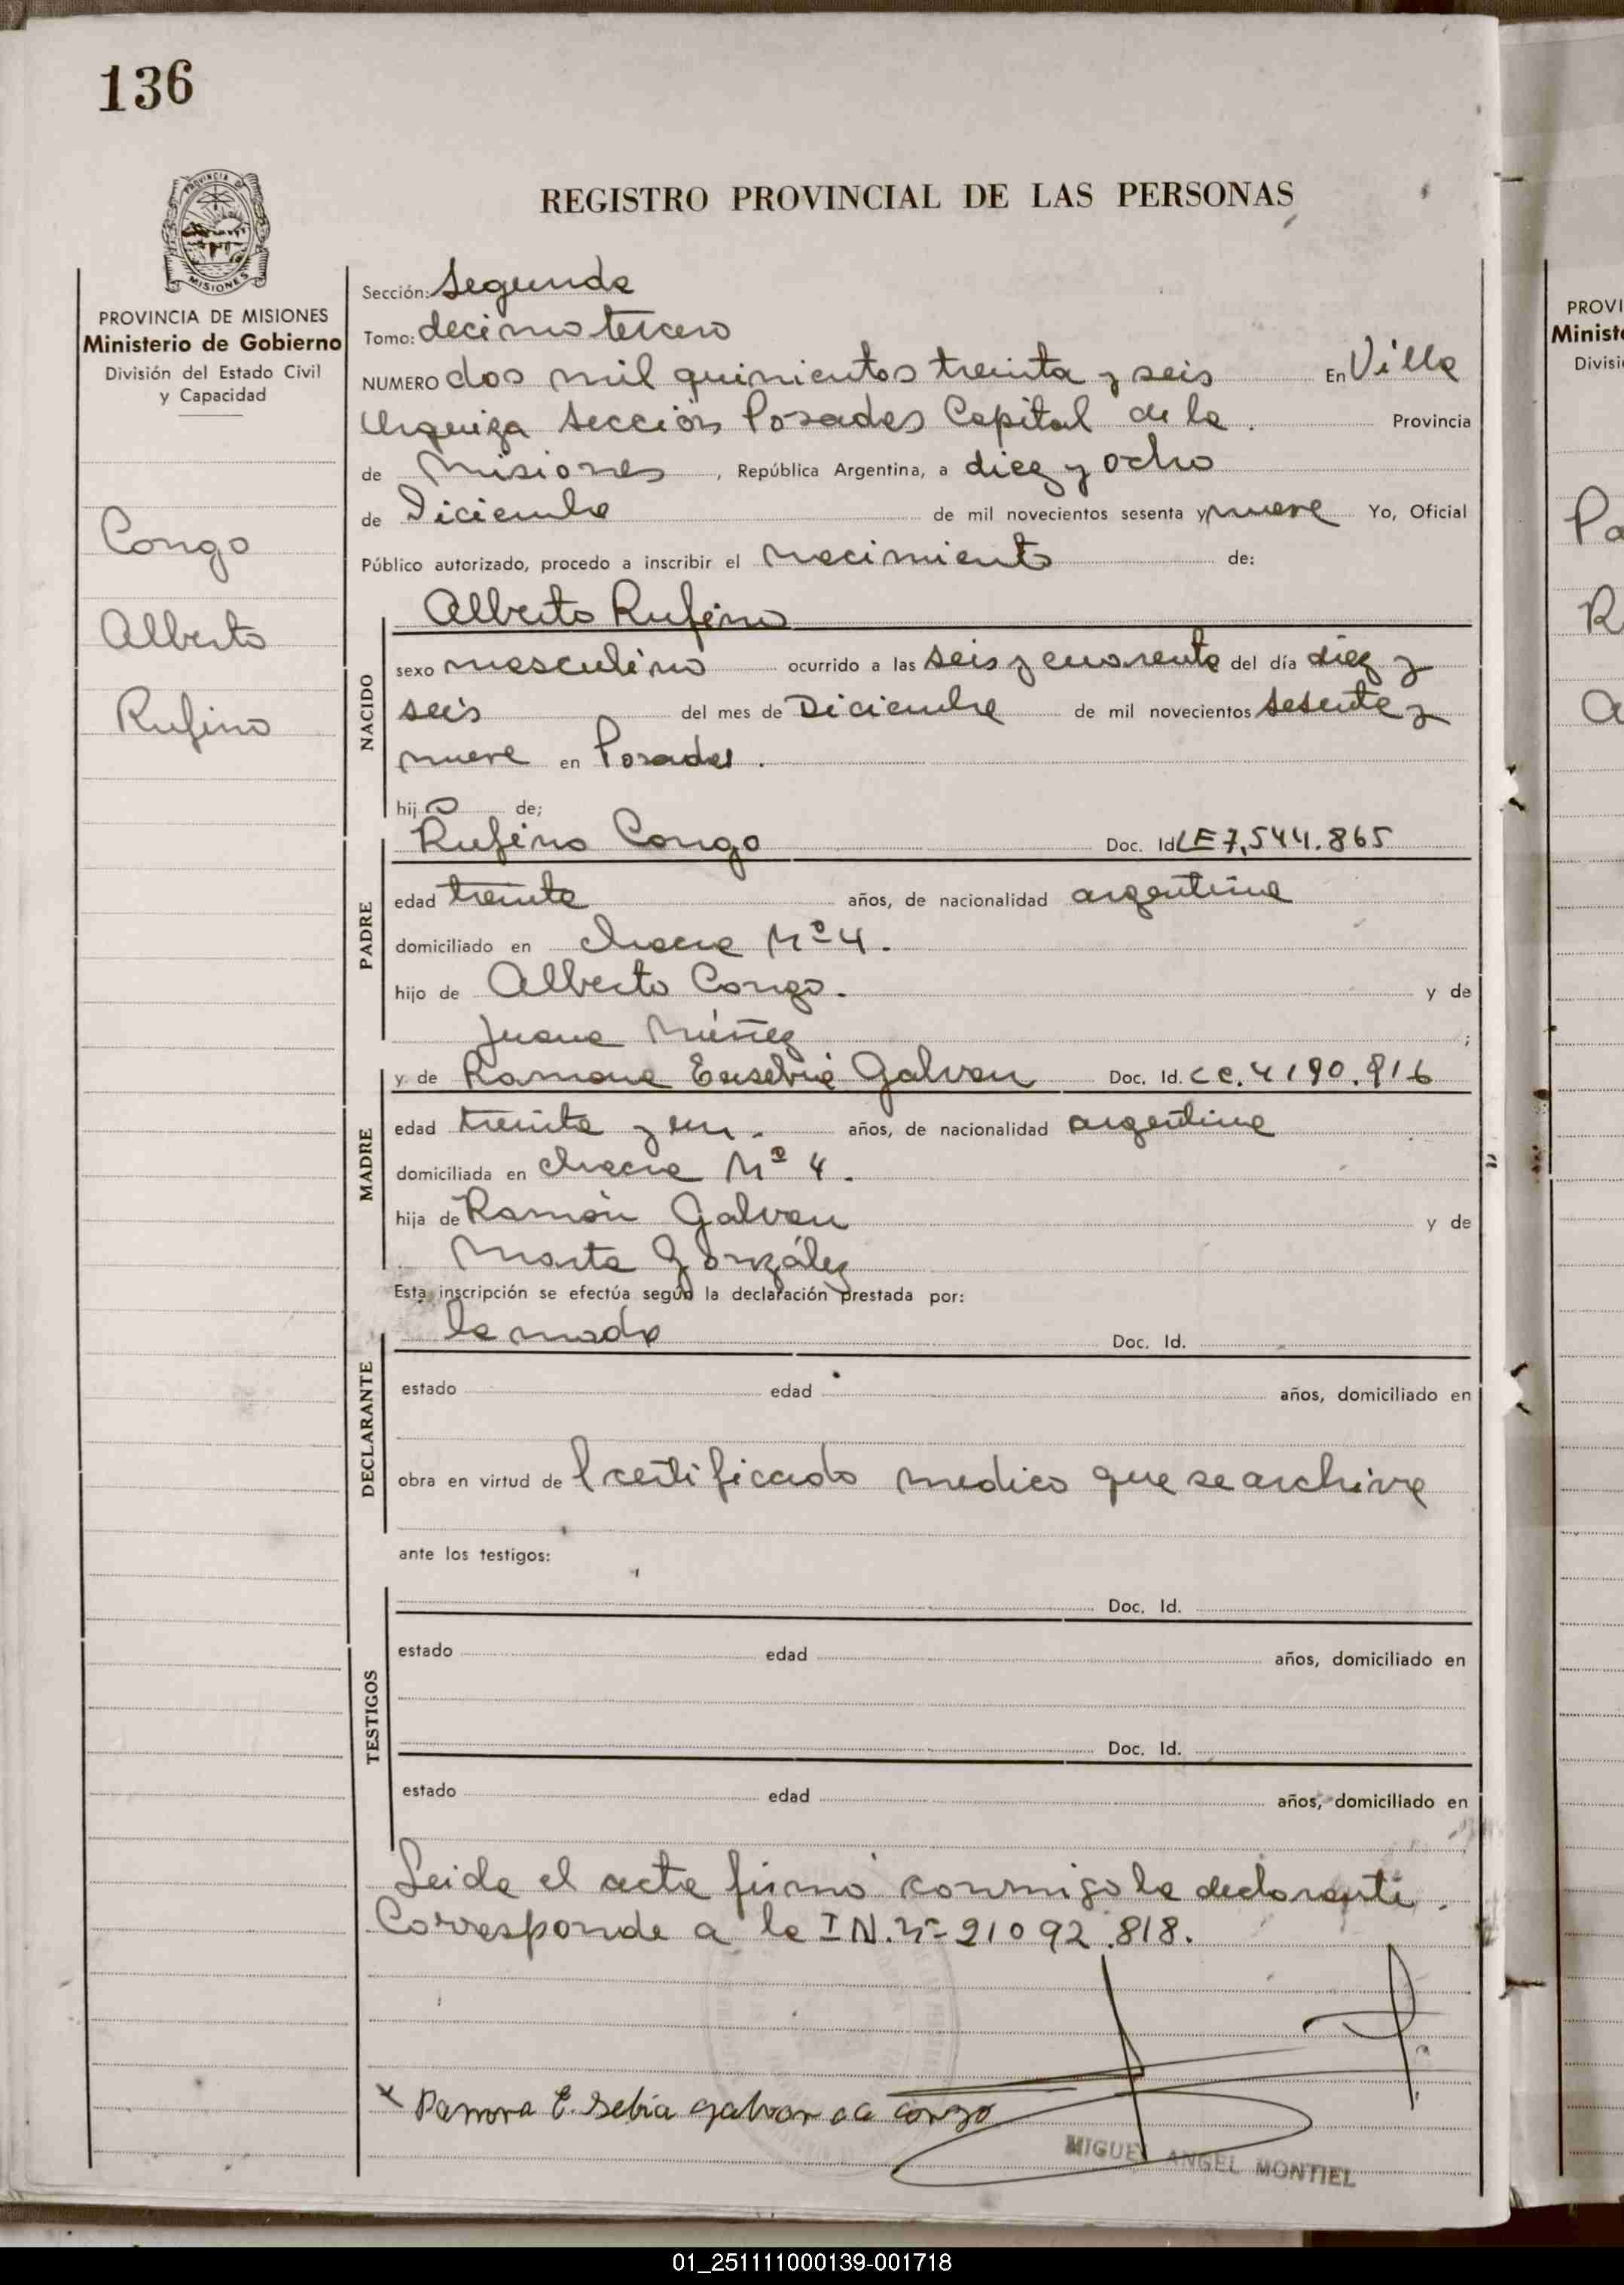 136
PROVINCIA DE MISIONES
REGISTRO PROVINCIAL DE LAS PERSONAS
PROVINCIA DE MISIONES
Ministerio de Gobierno
División del Estado Civil
y Capacidad
Congo
Alberto
Rufino
Sección: Segunda
Tomo: decimo tercero
NUMERO dos mil quinientos treinta y seis En Villa
Urquiza sección Posadas Capital de la . Provincia
de Misiones , República Argentina, a diez y ocho
de Diciembre de mil novecientos sesenta y nueve Yo, Oficial
Público autorizado, procedo a inscribir el nacimiento de:
Alberto Rufino
NACIDO
sexo masculino ocurrido a las seis y cuarenta del día diez y
seis del mes de Diciembre de mil novecientos sesenta y
nueve en Posadas .
hijo de;
PADRE
Rufino Congo Doc. Id LE 7,544.865
edad treinta años, de nacionalidad argentina
domiciliado en chacra Nº 4.
hijo de Alberto Congo. y de
Juana Núñez ;
MADRE
y de Ramona Eusebia Galvan Doc. Id. C C. 4190.816
edad treinta y un. años, de nacionalidad argentina
domiciliada en chacra Nº 4.
hija de Ramón Galvan y de
Marta González
Esta inscripción se efectúa según la declaración prestada por:
DECLARANTE
la madre Doc. Id.
estado edad años, domiciliado en
obra en virtud de l certificado medico que se archiva
ante los testigos:
TESTIGOS
Doc. Id.
estado edad años, domiciliado en
Doc. Id.
estado edad años, domiciliado en
Leida el acta firmó conmigo la declarante.
Corresponde a la I N. nº 21092.818.
x Ramona E. sebia galvan de congo
MIGUEL ANGEL MONTIEL
PROVI
Minist
Divisi
Pa
R
a
01_251111000139-001718